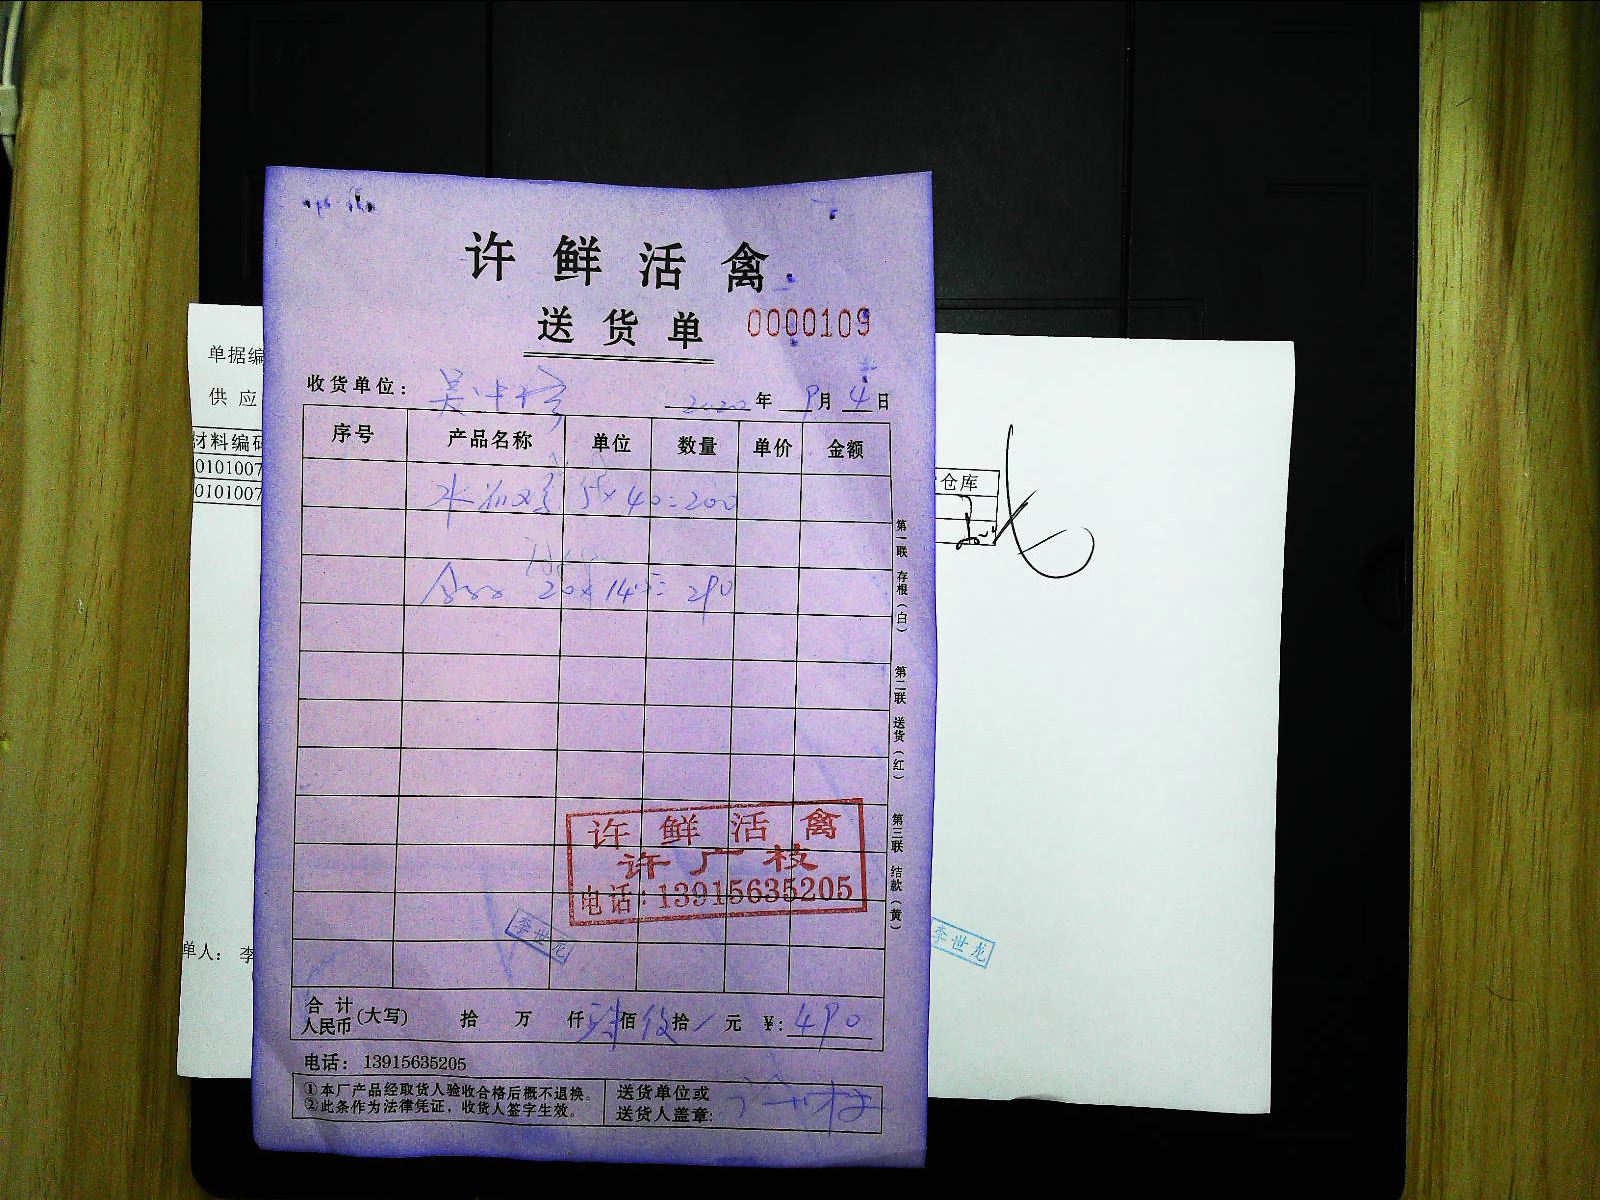 许鲜活禽
送货单 0000109
收货单位: 2020年9月4日
序号 产品名称 单位 数量 单价 金额
5×40=200
20×145=290
第一联 存根(白)
第二联 送货(红)
第三联 结款(黄)
许鲜活禽
许广枝
电话:13915635205
李世龙
合计人民币(大写) 拾 万 仟 肆佰 玖拾 元 ¥:490
电话: 13915635205
①本厂产品经取货人验收合格后概不退换。
②此条作为法律凭证,收货人签字生效。
送货单位或
送货人盖章:
单据编
供应
材料编码
0101007
0101007
仓库
单人: 李
李世龙